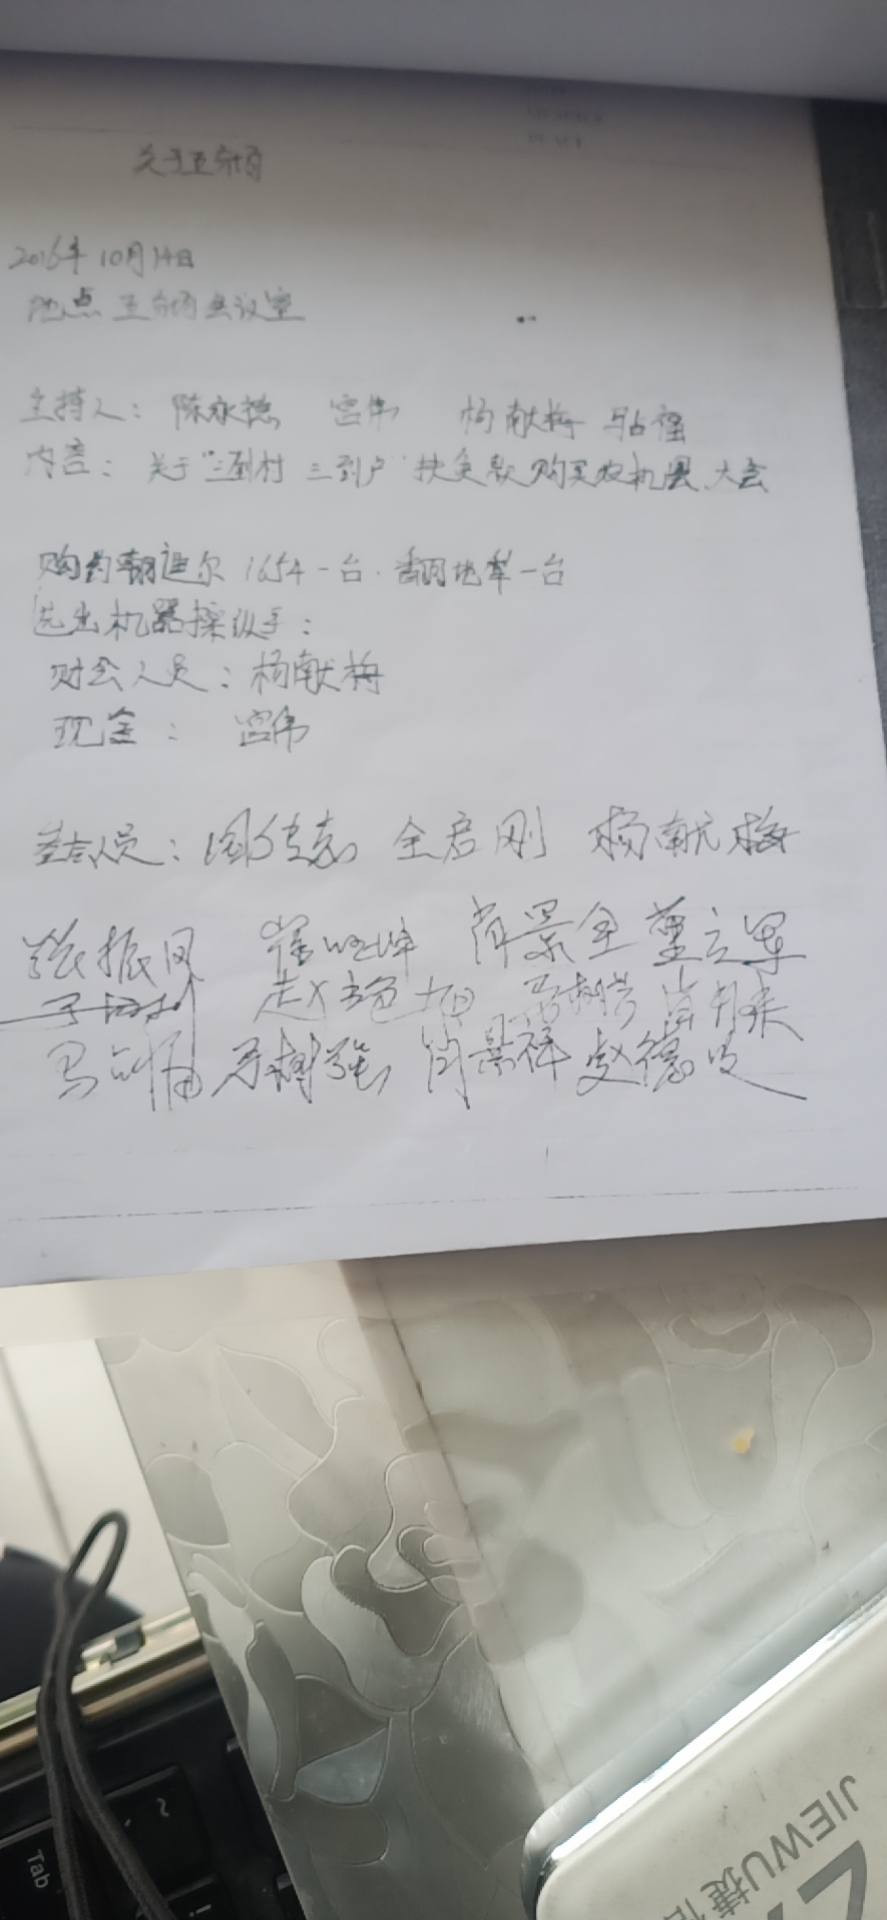 关于五分场
2016年10月14日
地点 五分场会议室
主持人: 陈永德 宫伟 杨献梅 马占福
内容: 关于"三到村 三到户"扶贫款购买农机具大会
购约翰迪尔1654一台. 翻地犁一台
选出机器操纵手:
财会人员: 杨献梅
现金: 宫伟
参加人员: 国传志 全启刚 杨献梅
张振凤 肖景全 董立军
赵艳
马占福 于树强 肖景祥 赵德
Tab
JIEWU捷